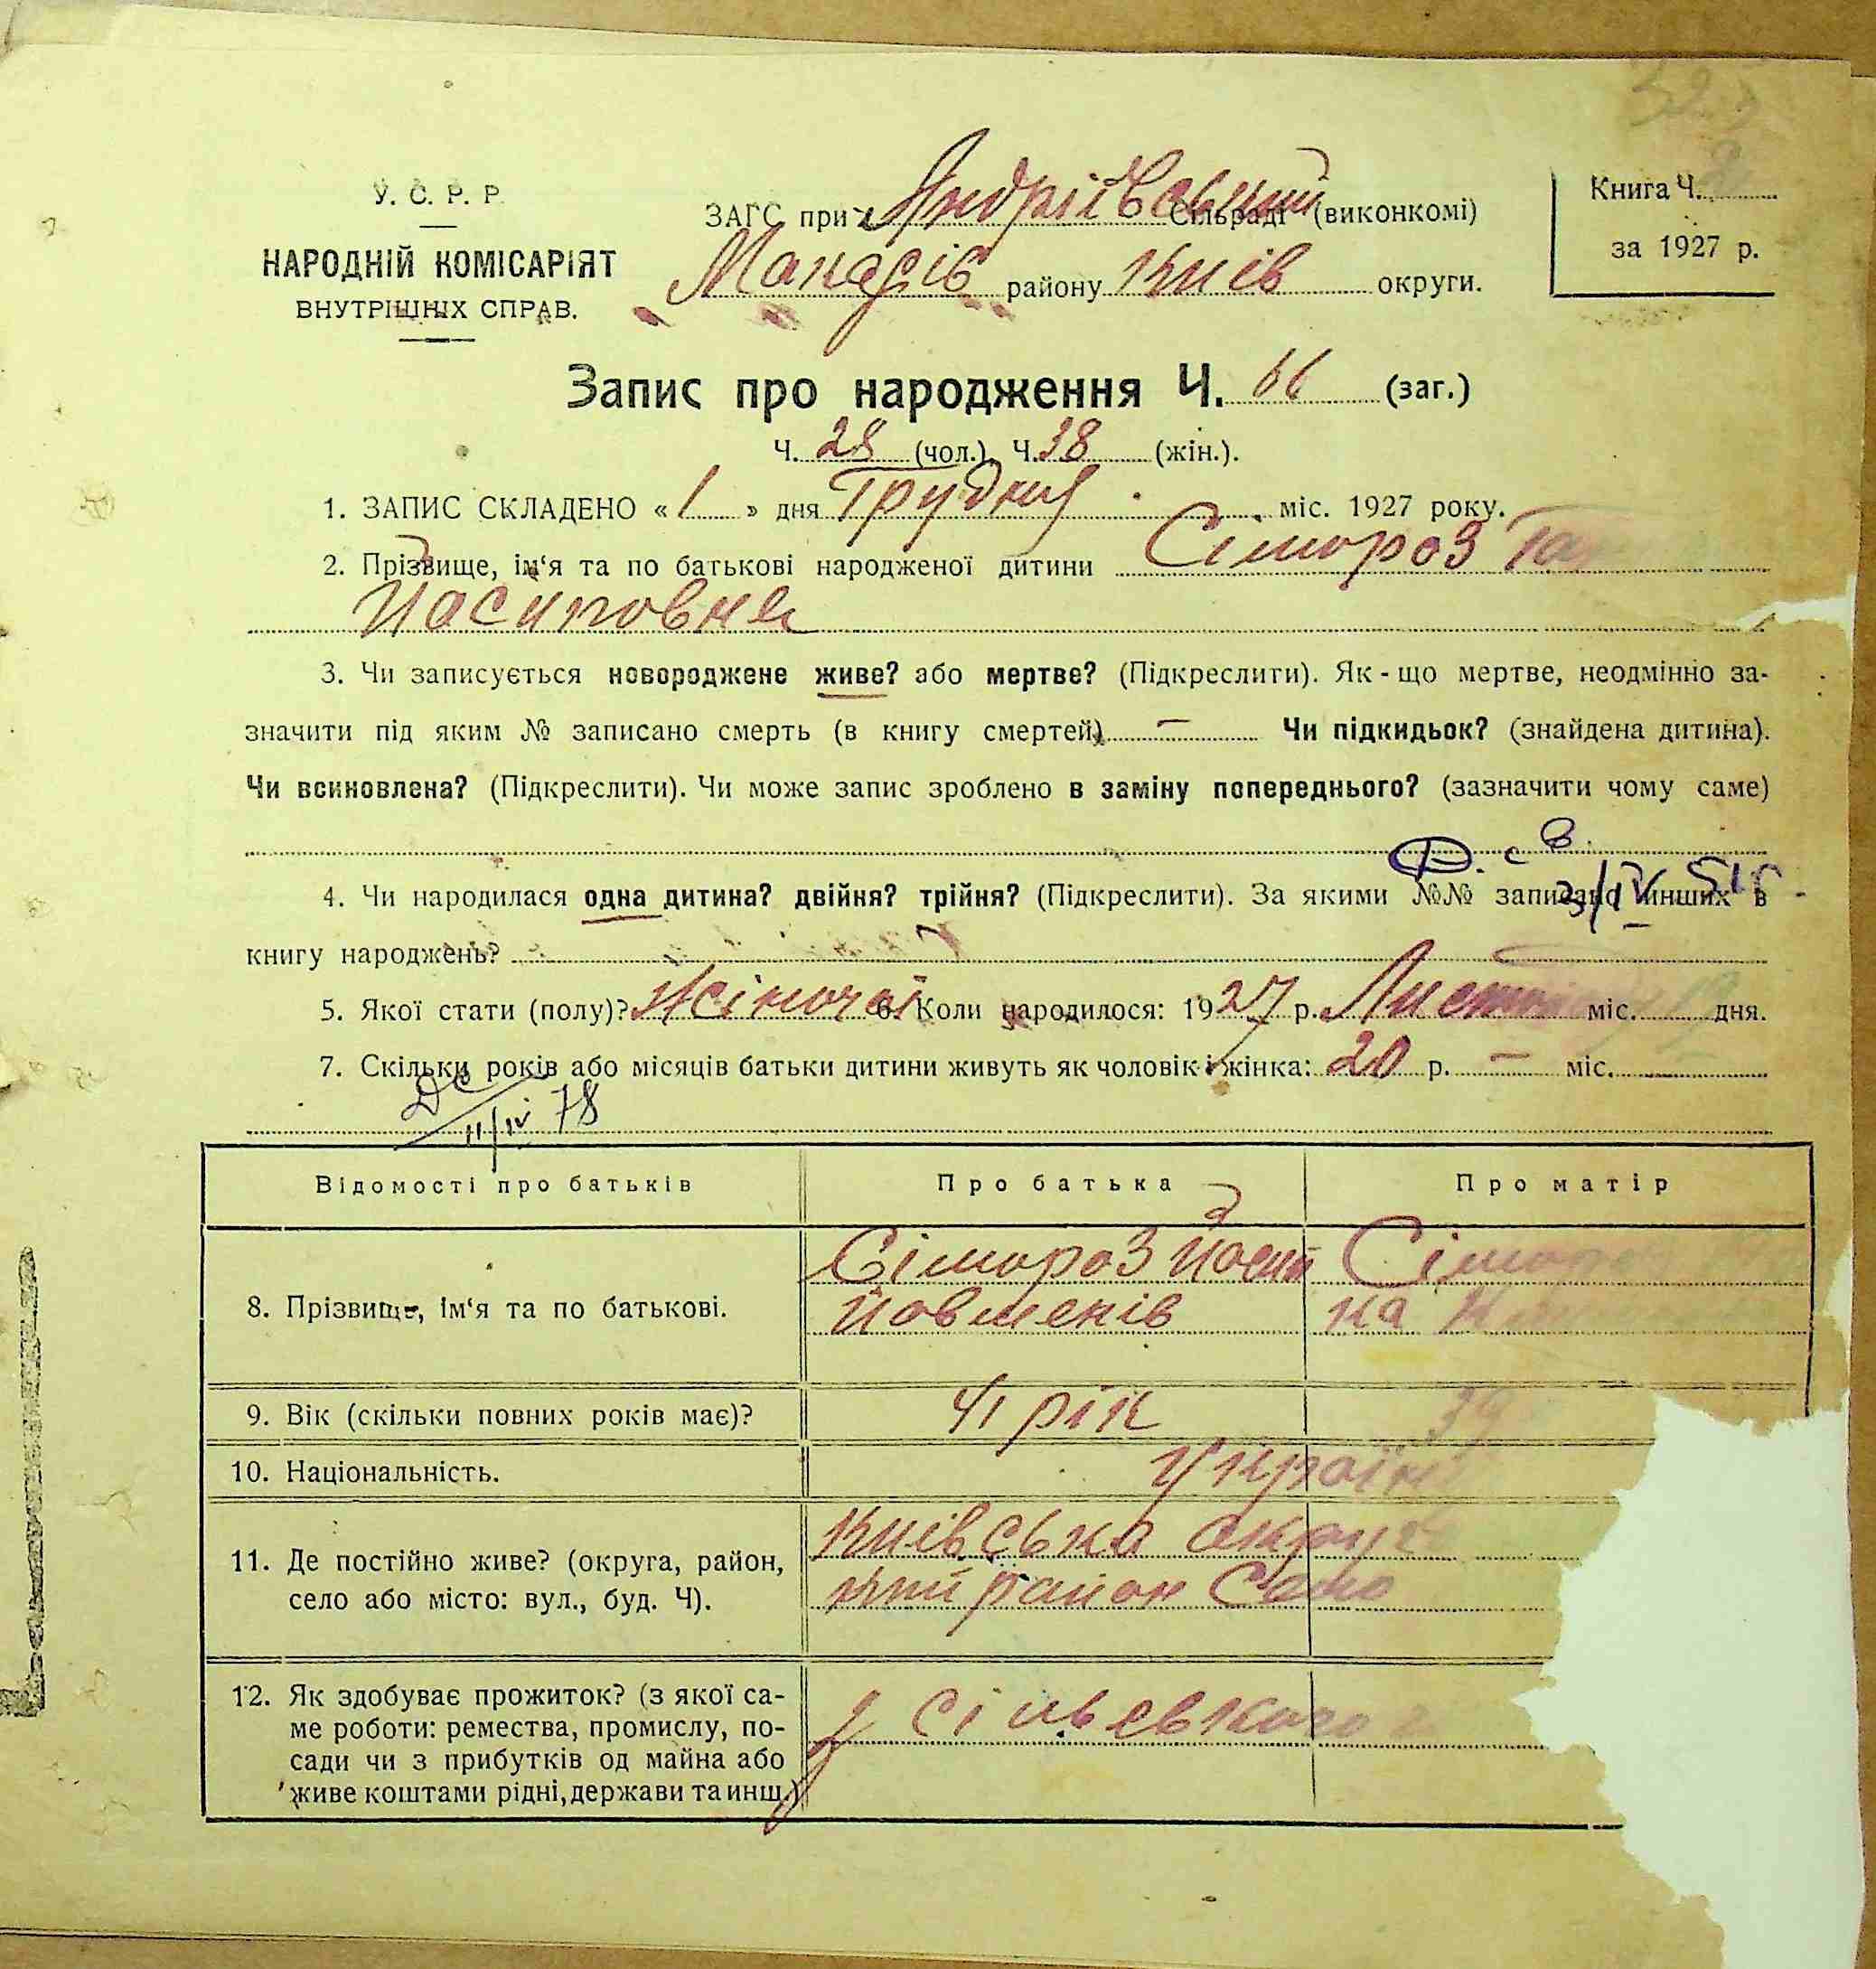 У. С. Р. Р.
НАРОДНІЙ КОМІСАРІЯТ
ВНУТРІШНІХ СПРАВ.
ЗАГС при Андріївський Сільраді (виконкомі)
Макарів району Київ округи.
Книга Ч.
за 1927 р.
Запис про народження Ч. 66 (заг.)
Ч. 28 (чол.) Ч. 38 (жін.).
1. ЗАПИС СКЛАДЕНО «1» дня Грудня міс. 1927 року.
2. Прізвище, ім‘я та по батькові народженої дитини Сімороз
Йосиповна
3. Чи записується новороджене живе? або мертве? (Підкреслити). Як-що мертве, неодмінно за-
значити під яким № записано смерть (в книгу смертей) — Чи підкидьок? (знайдена дитина).
Чи всиновлена? (Підкреслити). Чи може запис зроблено в заміну попереднього? (зазначити чому саме)
4. Чи народилася одна дитина? двійня? трійня? (Підкреслити). За якими №№ записано инших в
3/IV 51г.
книгу народжень?
5. Якої стати (полу)? Жіночої 6. Коли народилося: 1927 р. міс. дня.
7. Скільки років або місяців батьки дитини живуть як чоловік і жінка: 20 р. — міс.
11/IV 78
Відомості про батьків Про батька Про матір
8. Прізвище, ім‘я та по батькові.
Сімороз Йосип
9. Вік (скільки повних років має)? 41 рік 39
10. Національність.
11. Де постійно живе? (округа, район,
село або місто: вул., буд. Ч).
Київська округа
район Село
12. Як здобуває прожиток? (з якої са-
ме роботи: ремества, промислу, по-
сади чи з прибутків од майна або
живе коштами рідні, держави та инш.)
з сільевкого